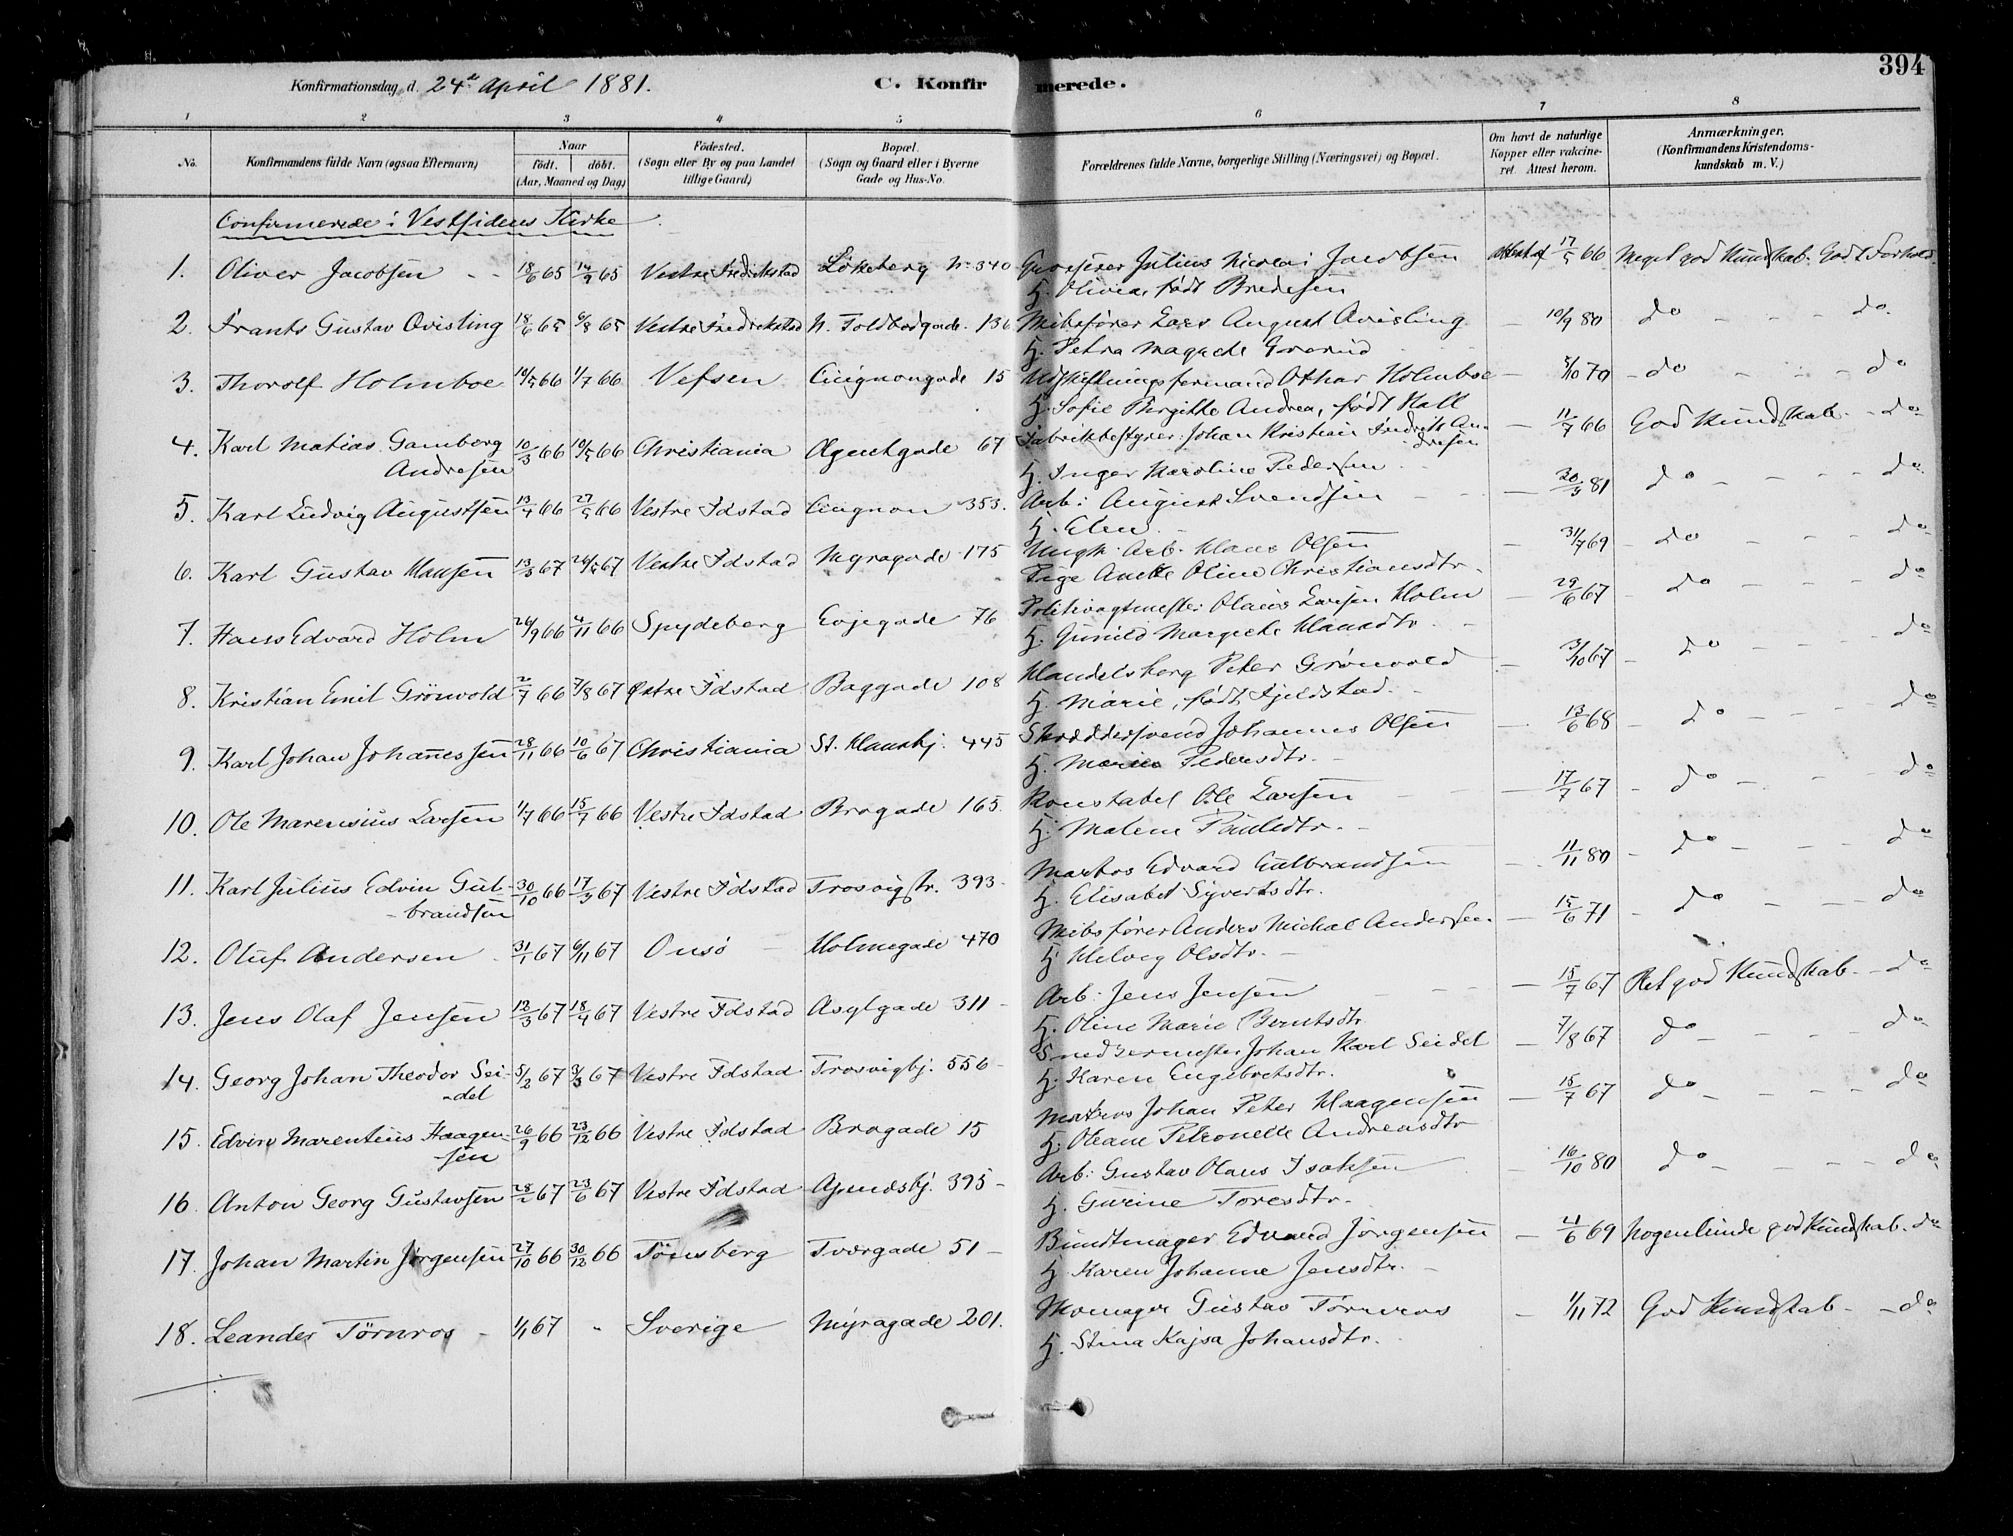 394
Konfirmationsdag d. 24de April 1881. C. Konfirmerede.
1 2 3 4 5 6 7 8
No. Konfirmandens fulde Navn (ogsaa Efternavn) Naar født. døbt. (Aar, Maaned og Dag) Fødested. (Sogn eller By og paa Landet tillige Gaard) Bopæl. (Sogn og Gaard eller i Byerne Gade og Hus-No. Forældrenes fulde Navne, borgerlige Stilling (Næringsvei) og Bopæl. Om havt de naturlige Kopper eller vakcineret. Attest herom. Anmærkninger. (Konfirmandens Kristendomskundskab m. V.)
Confirmerede i Vestsidens Kirke
1. Oliver Jacobsen 18/6 65 14/9 65 Vestre Fredrikstad Lökeberg No 340 Grosserer Julius Nicolai Jacobsen Attest af 17/5 66 Meget god Kundskab. Godt Forhold.
H. Olivia, født Bredesen
2. Frants Gustav Qvisling 18/6 65 6/8 65 Vestre Fredrikstad N. Toldbodgade 136 Skibsfører Lars August Qvisling 10/9 80 do do
H. Petra Magrete Grorud
3. Thorolf Holmboe 10/5 66 1/7 66 Vefsen Cicignongade 15 Udskiftningsformand Othar Holmboe 5/10 70 do do
H. Sofie Birgitte Andrea, født Hall
4. Karl Matias Gamborg Andresen 10/3 66 10/5 66 Christiania Agentgade 67 Fabrikbestyrer Johan Kristian Fredrik Andresen 11/7 66 God Kundskab do
H. Inger Karoline Pedersen
5. Karl Ludvig Augustsen 13/4 66 27/5 66 Vestre Fdstad Cicignon 353. Arb: August Svendsen 30/3 81 do do
H. Elen
6. Karl Gustav Klausen 13/3 67 24/5 67 Vestre Fdstad Myragade 175 Ungk. Arb. Klaus Olsen 31/7 69 do do
Pige Anette Oline Christiansdtr.
7. Hans Edvard Holm 26/9 66 4/11 66 Spydeberg Evjegade 76 Politivagtmester Olaus Larsen Holm 29/6 67 do do
H. Gunild Margrete Klausdtr
8. Kristian Emil Grönvold 2/7 66 7/8 67 Østre Fdstad Baggade 108 Handelsborg Peter Grönvold 3/10 67 do do
H. Marie, født Fjeldstad.
9. Karl Johan Johanessen 28/11 66 10/6 67 Christiania St. Hanshj. 445 Skræddersvend Johannes Olsen 13/6 68 do do
H. Maria Pedersdtr.
10. Ole Marensius Larsen 1/7 66 15/7 66 Vestre Fdstad Brogade 165. Konstabel Ole Larsen 17/7 67 do do
H. Malene Paulsdtr.
11. Karl Julius Edvin Gulbrandsen 30/10 66 17/3 67 Vestre Fdstad Trosvigstr. 393 Matros Edvard Gulbrandsen 11/11 80 do do
H. Elisabet Syvertsdtr.
12. Oluf Andersen 31/1 67 6/11 67 Onsö Holmegade 470 Skibsfører Anders Michal Andersen. 15/6 71 do do
H Helvig Olsdtr.
13. Jens Olaf Jensen 12/3 67 18/4 67 Vestre Fdstad Asylgade 311 Arb: Jens Jensen 15/7 67 Ret god Kundskab do
H. Oline Marie Berntsdtr
14. Georg Johan Theodor Seidel 5/2 67 3/3 67 Vestre Fdstad Trosvigbj. 556 Snedkermester Johan Karl Seidel 7/8 67 do do
H. Karen Engebretsdtr.
15. Edvin Marentius Haagensen 26/9 66 23/12 66 Vestre Fdstad Brogade 15 Matros Johan Peter Haagensen 15/7 67 do do
H. Oleane Petronelle Andreasdtr
16. Anton Georg Gustavsen 28/2 67 23/6 67 Vestre Fdstad 395 Arb: Gustav Olaus Isaksen 16/10 80 do do
H. Gurine Toresdtr.
17. Johan Martin Jörgensen 27/10 66 30/12 66 Tönsberg Tvergade 51 Bundtmager Edvard Jörgensen 21/6 69 Nogenlunde god Kundskab. do
H Karen Johanne Jensdtr.
18. Leander Törnros 1/1 67 - Sverige Myragade 201. Skomager Gustav Törnros 1/11 72 God Kundskab do
H. Stina Kajsa Johansdtr.